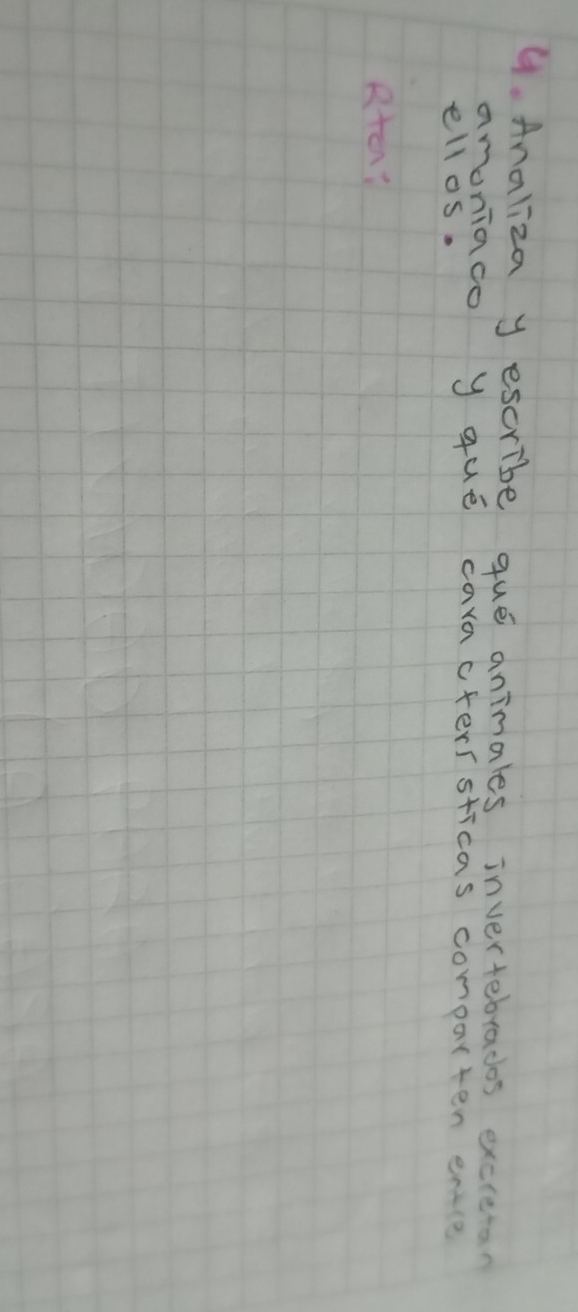 4. Analiza y escribe qué animales invertebrados excretan
amoníaco y qué características comparten entre
ellos.
Rta: